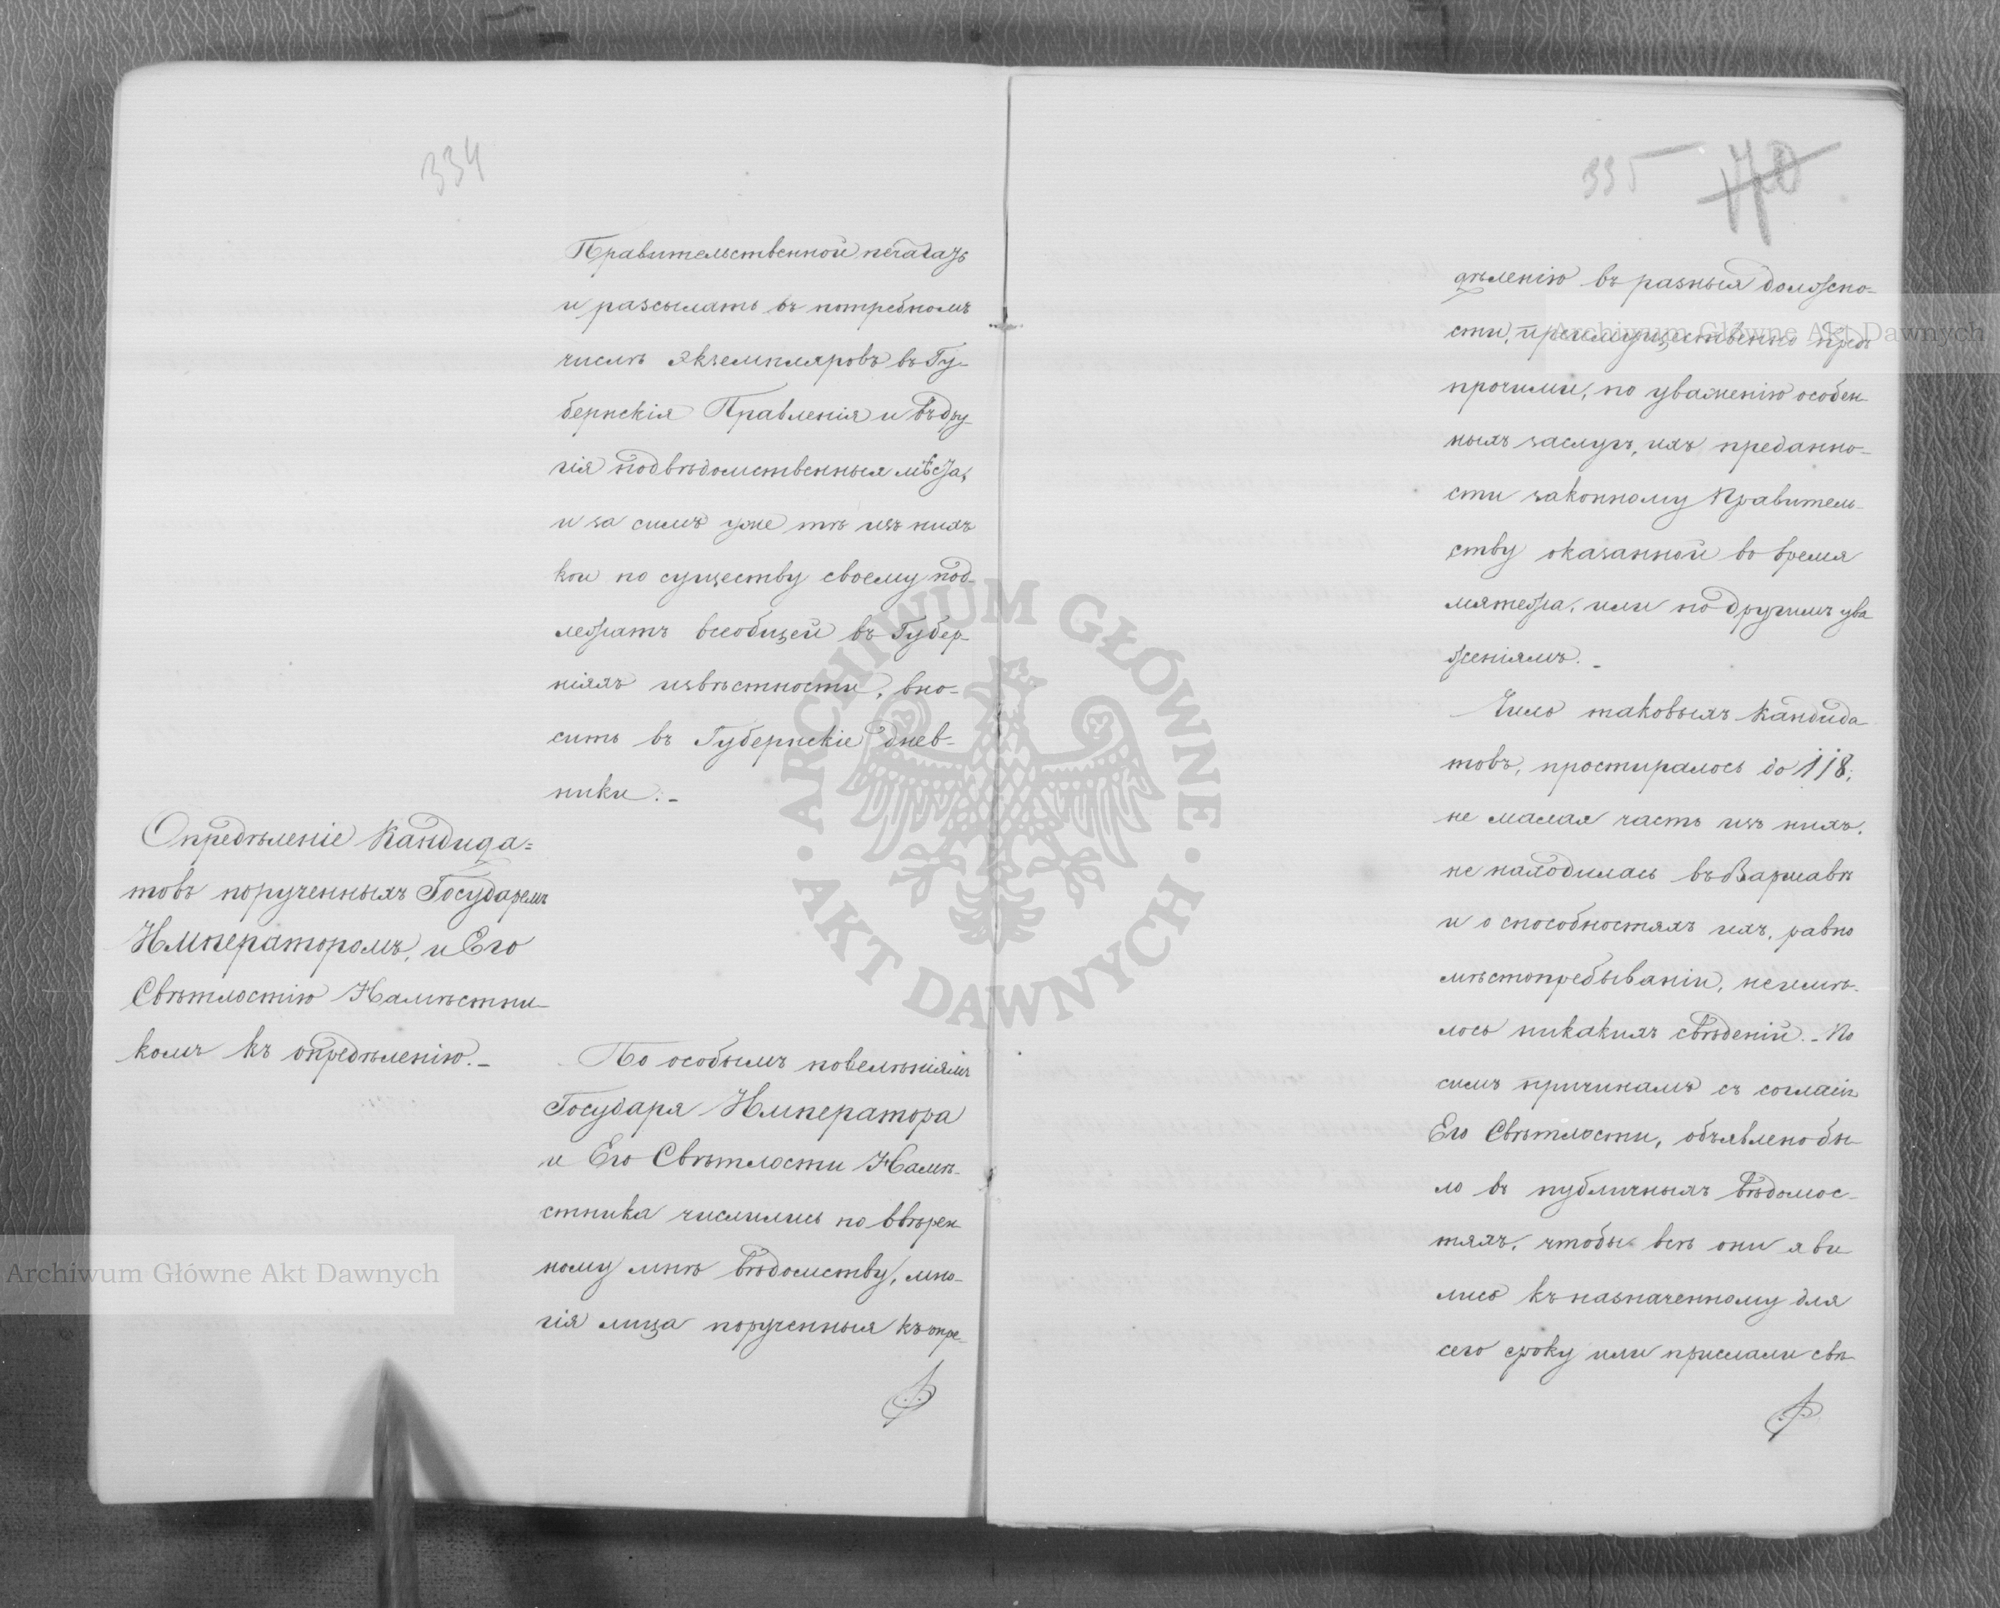 334
Правительственной печатать
и разсылать въ потребномъ
числѣ экземпляровъ въ Гу-
бернскія Правленія и въ дру-
гія подвѣдомственныя мѣста,
и за симъ уже тѣ изъ нихъ
кои по существу своему под-
лежатъ всеобщей въ Губер-
ніяхъ извѣстности, вно-
сить въ Губернскіе днев-
ники.-
Опредѣленіе Кандида=
товъ порученныхъ Государемъ
Императоромъ, и Его
Свѣтлостію Намѣстни-
комъ къ опредѣленію.-
По особымъ повелѣніямъ
Государя Императора
и Его Свѣтлости Намѣ-
стника числились по ввѣрен-
ному мнѣ вѣдомству, мно-
гія лица порученныя къ опре-
335 170
дѣленію въ разныя должно-
сти, преимущественно предъ
прочими, по уваженію особен-
ныхъ заслугъ, ихъ преданно-
сти законному Правитель-
ству оказанной во время
мятежа, или по другимъ ува
женіямъ.-
Число таковыхъ Кандида
товъ, простиралось до 118;
не малая часть изъ нихъ,
не находилась въ Варшавѣ
и о способностяхъ ихъ, равно
мѣстопребываніи, не имѣ-
лось никакихъ свѣденій.- По
симъ причинамъ съ согласія
Его Свѣтлости, объявлено бы-
ло въ публичныхъ вѣдомос-
тяхъ, чтобы всѣ они яви
лись къ назначенному для
сего сроку или прислали свѣ-
Archiwum Główne Akt Dawnych
Archiwum Główne Akt Dawnych
ARCHIWUM GŁÓWNE
AKT DAWNYCH